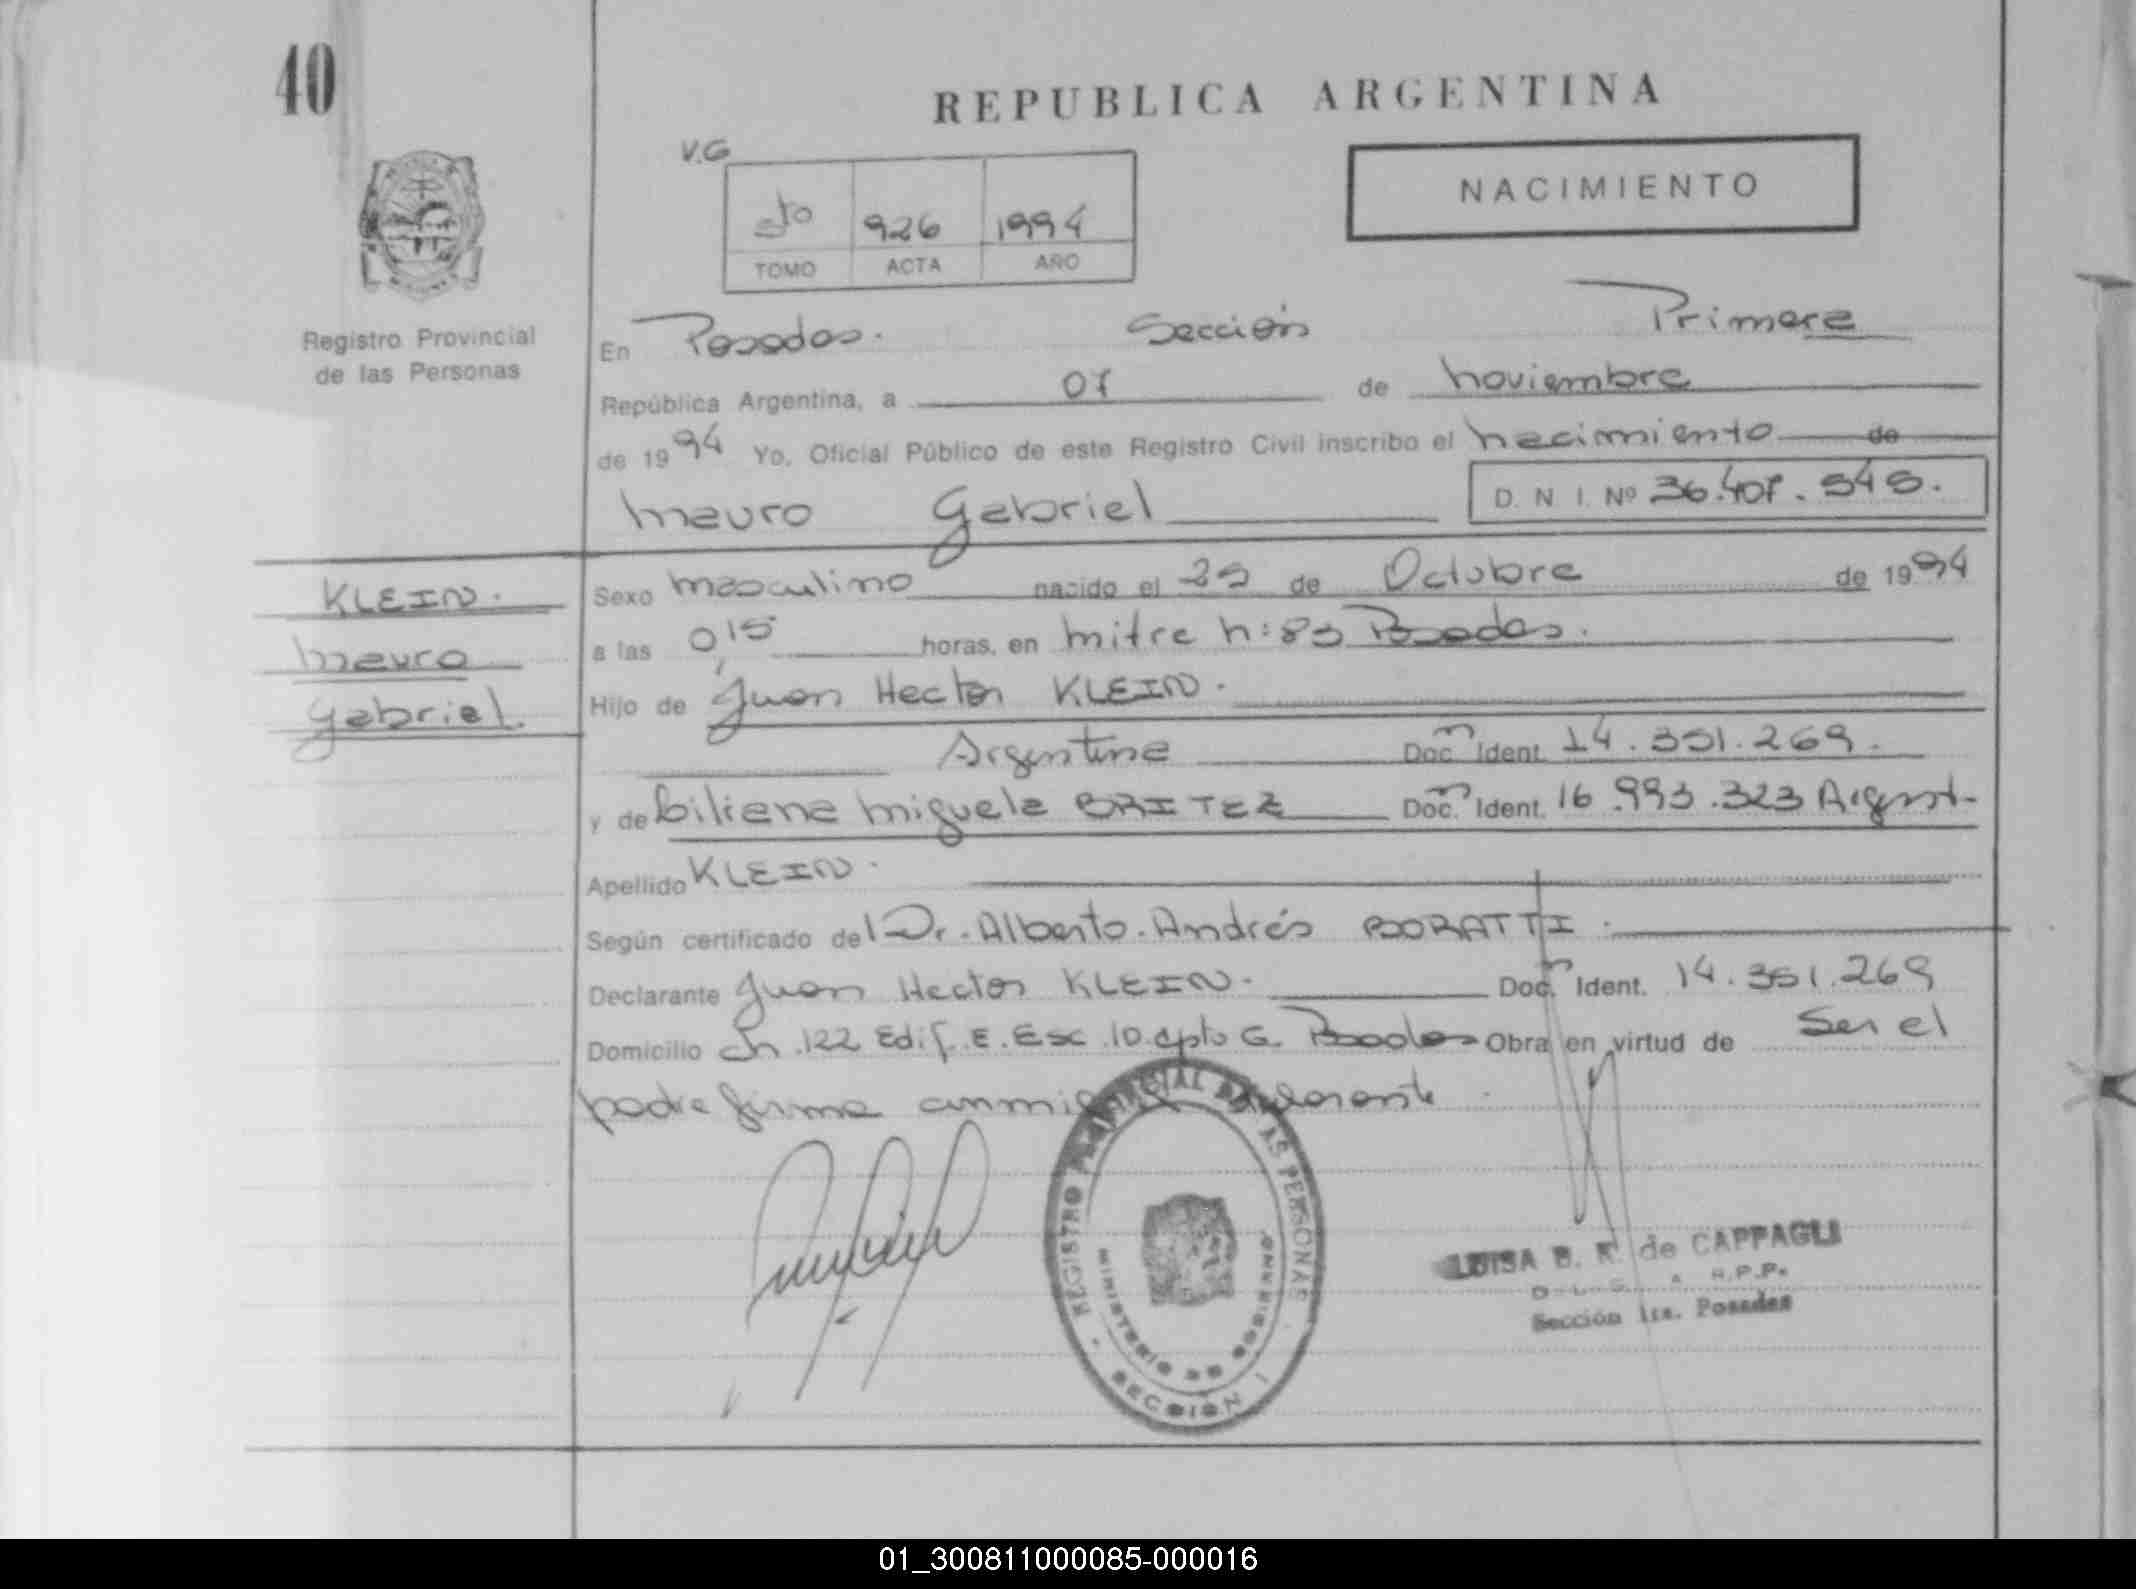 40
REPUBLICA ARGENTINA
V.G
5to 926 1994
TOMO ACTA AÑO
NACIMIENTO
Registro Provincial
de las Personas
En Posadas. Sección Primera
República Argentina, a 07 de noviembre
de 1994 Yo, Oficial Público de este Registro Civil inscribo el nacimiento de
Mauro Gabriel
D. N. I. Nº 36.407.545.
KLEIN.
Mauro
Gabriel.
Sexo masculino nacido el 25 de Octubre de 1994
a las 0,15 horas, en mitre n: 83 Posadas.
Hijo de Juan Hector KLEIN.
Argentina Doc. Ident. 14.351.269.
y de Liliana Miguela BRITEZ Doc. Ident. 16.993.323 Argent-
Apellido KLEIN.
Según certificado del Dr. Alberto Andrés BORATTI.
Declarante Juan Hector KLEIN. Doc. Ident. 14.351.269
Domicilio Ch.122 Edif. E. Esc. 10 apto G. Posadas Obra en virtud de Ser el
padre firma conmigo
REGISTRO PROVINCIAL DE LAS PERSONAS
MINISTERIO DE GOBIERNO
SECCION 1
LUISA B. R. de CAPPAGLI
R.P.P.
Sección 1ra. Posadas
01_300811000085-000016